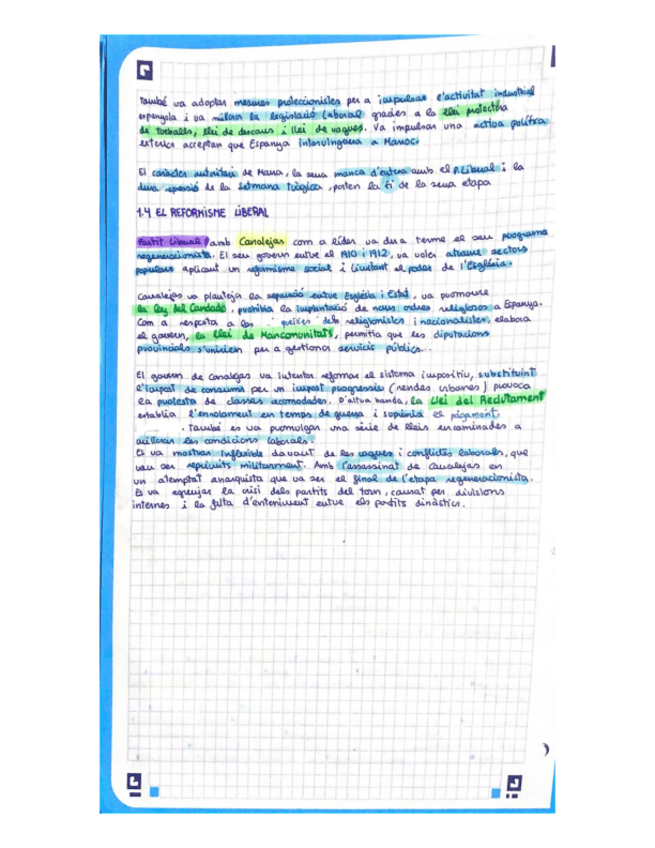 També va adoptar mesures proteccionistes per a impulsar l'activitat industrial
espanyola i va millorar la legislació laboral gracies a la llei protectora
de treballs, llei de descans i llei de vagues. Va impulsar una activa política
exterior acceptan que Espanya intervinguera a Marroc.
El caràcter autoritari de Maura, la seua manca d'entesa amb el P. Liberal i la
dura repressió de la Setmana Tràgica, porten la fi de la seua etapa
1.4 EL REFORMISME LIBERAL
Partit Liberal amb Canalejas com a líder va dur a terme el seu programa
regeneracionista. El seu govern entre el 1910 i 1912, va voler atraure sectors
populars aplicant un reformisme social i limitant el poder de l'Església.
Canalejas va plantejar la separació entre Església i Estat, va promoure
la Ley del Candado, prohibia la implantació de nous ordres religiosos a Espanya.
Com a resposta a les peixes dels religionistes i nacionalistes, elabora
el govern, la Llei de Mancomunitats, permitia que les diputacions
provincials s'uniren per a gestionar servicis públics...
El govern de Canalejas va intentar reformar el sistema impositiu, substituint
l'impost de consums per un impost progressiu (rendes urbanes) provoca
la protesta de classes acomodades. D'altra banda, la Llei del Reclutament
establia l'enrolament en temps de guerra i suprimia el pagament
. També es va promulgar una sèrie de lleis encaminades a
millorar les condicions laborals.
Es va mostrar inflexible davant de les vagues i conflictes laborals, que
van ser reprimits militarment. Amb l'assassinat de Canalejas en
un atemptat anarquista que va ser el final de l'etapa regeneracionista.
Es va agreujar la crisi dels partits del torn, causat per divisions
internes i la falta d'enteniment entre els partits dinàstics.